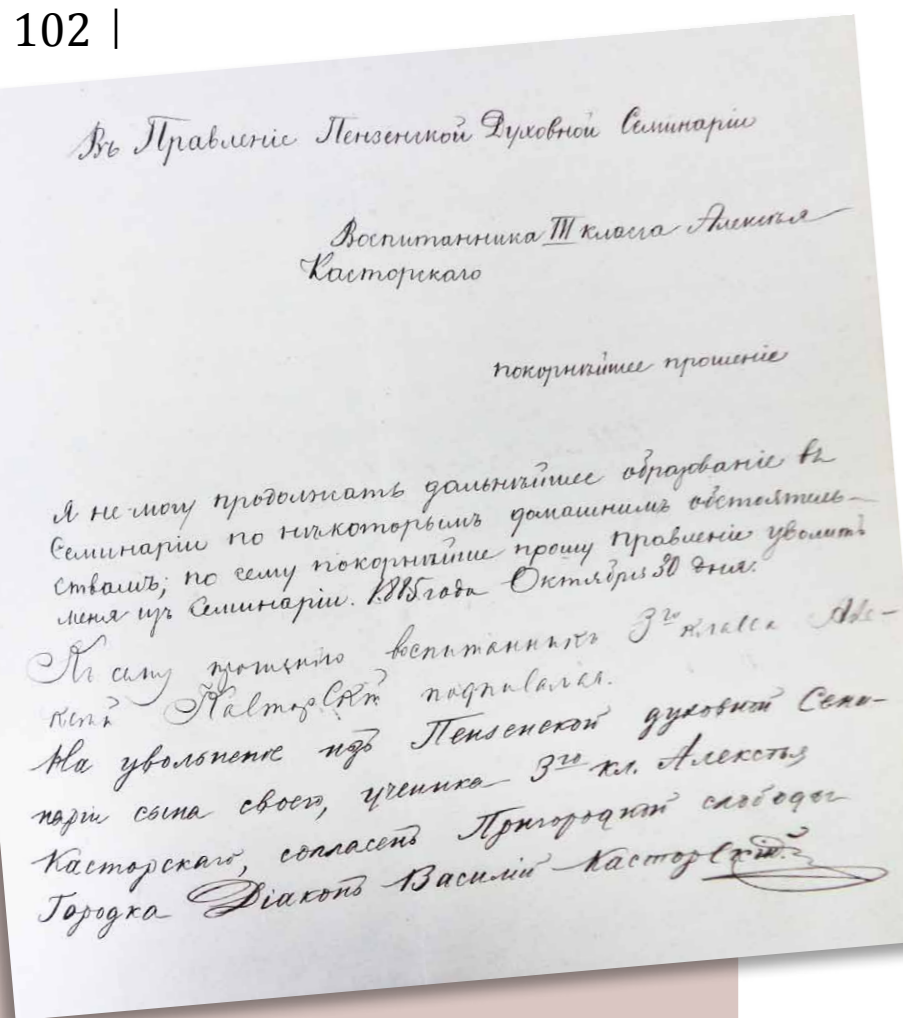 102 |
Въ Правленіе Пензенской Духовной Семинаріи
Воспитанника III класса Алексѣя
Касторскаго
покорнѣйшее прошеніе
Я не могу продолжать дальнѣйшее образованіе въ
Семинаріи по нѣкоторымъ домашнимъ обстоятель-
ствамъ; по сему покорнѣйше прошу Правленіе уволить
меня изъ Семинаріи. 1885 года Октября 30 дня.
Къ сему прошенію воспитанникъ 3го класса Але-
ксѣй Касторскій подписался.
На увольненіе изъ Пензенской духовной Семи-
наріи сына своего, ученика 3го кл. Алексѣя
Касторскаго, согласенъ Пригородной слободы
Городка Діаконъ Василій Касторскій.